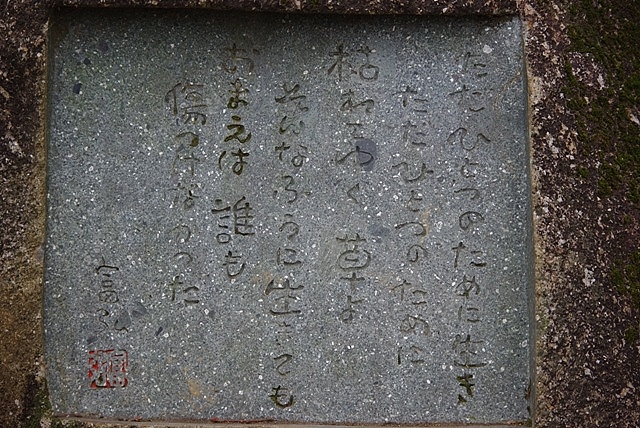 ただひとつのために生き
ただひとつのために
枯れてゆく草よ
そんなふうに生きても
おまえは誰も
傷つけなかった
富弘